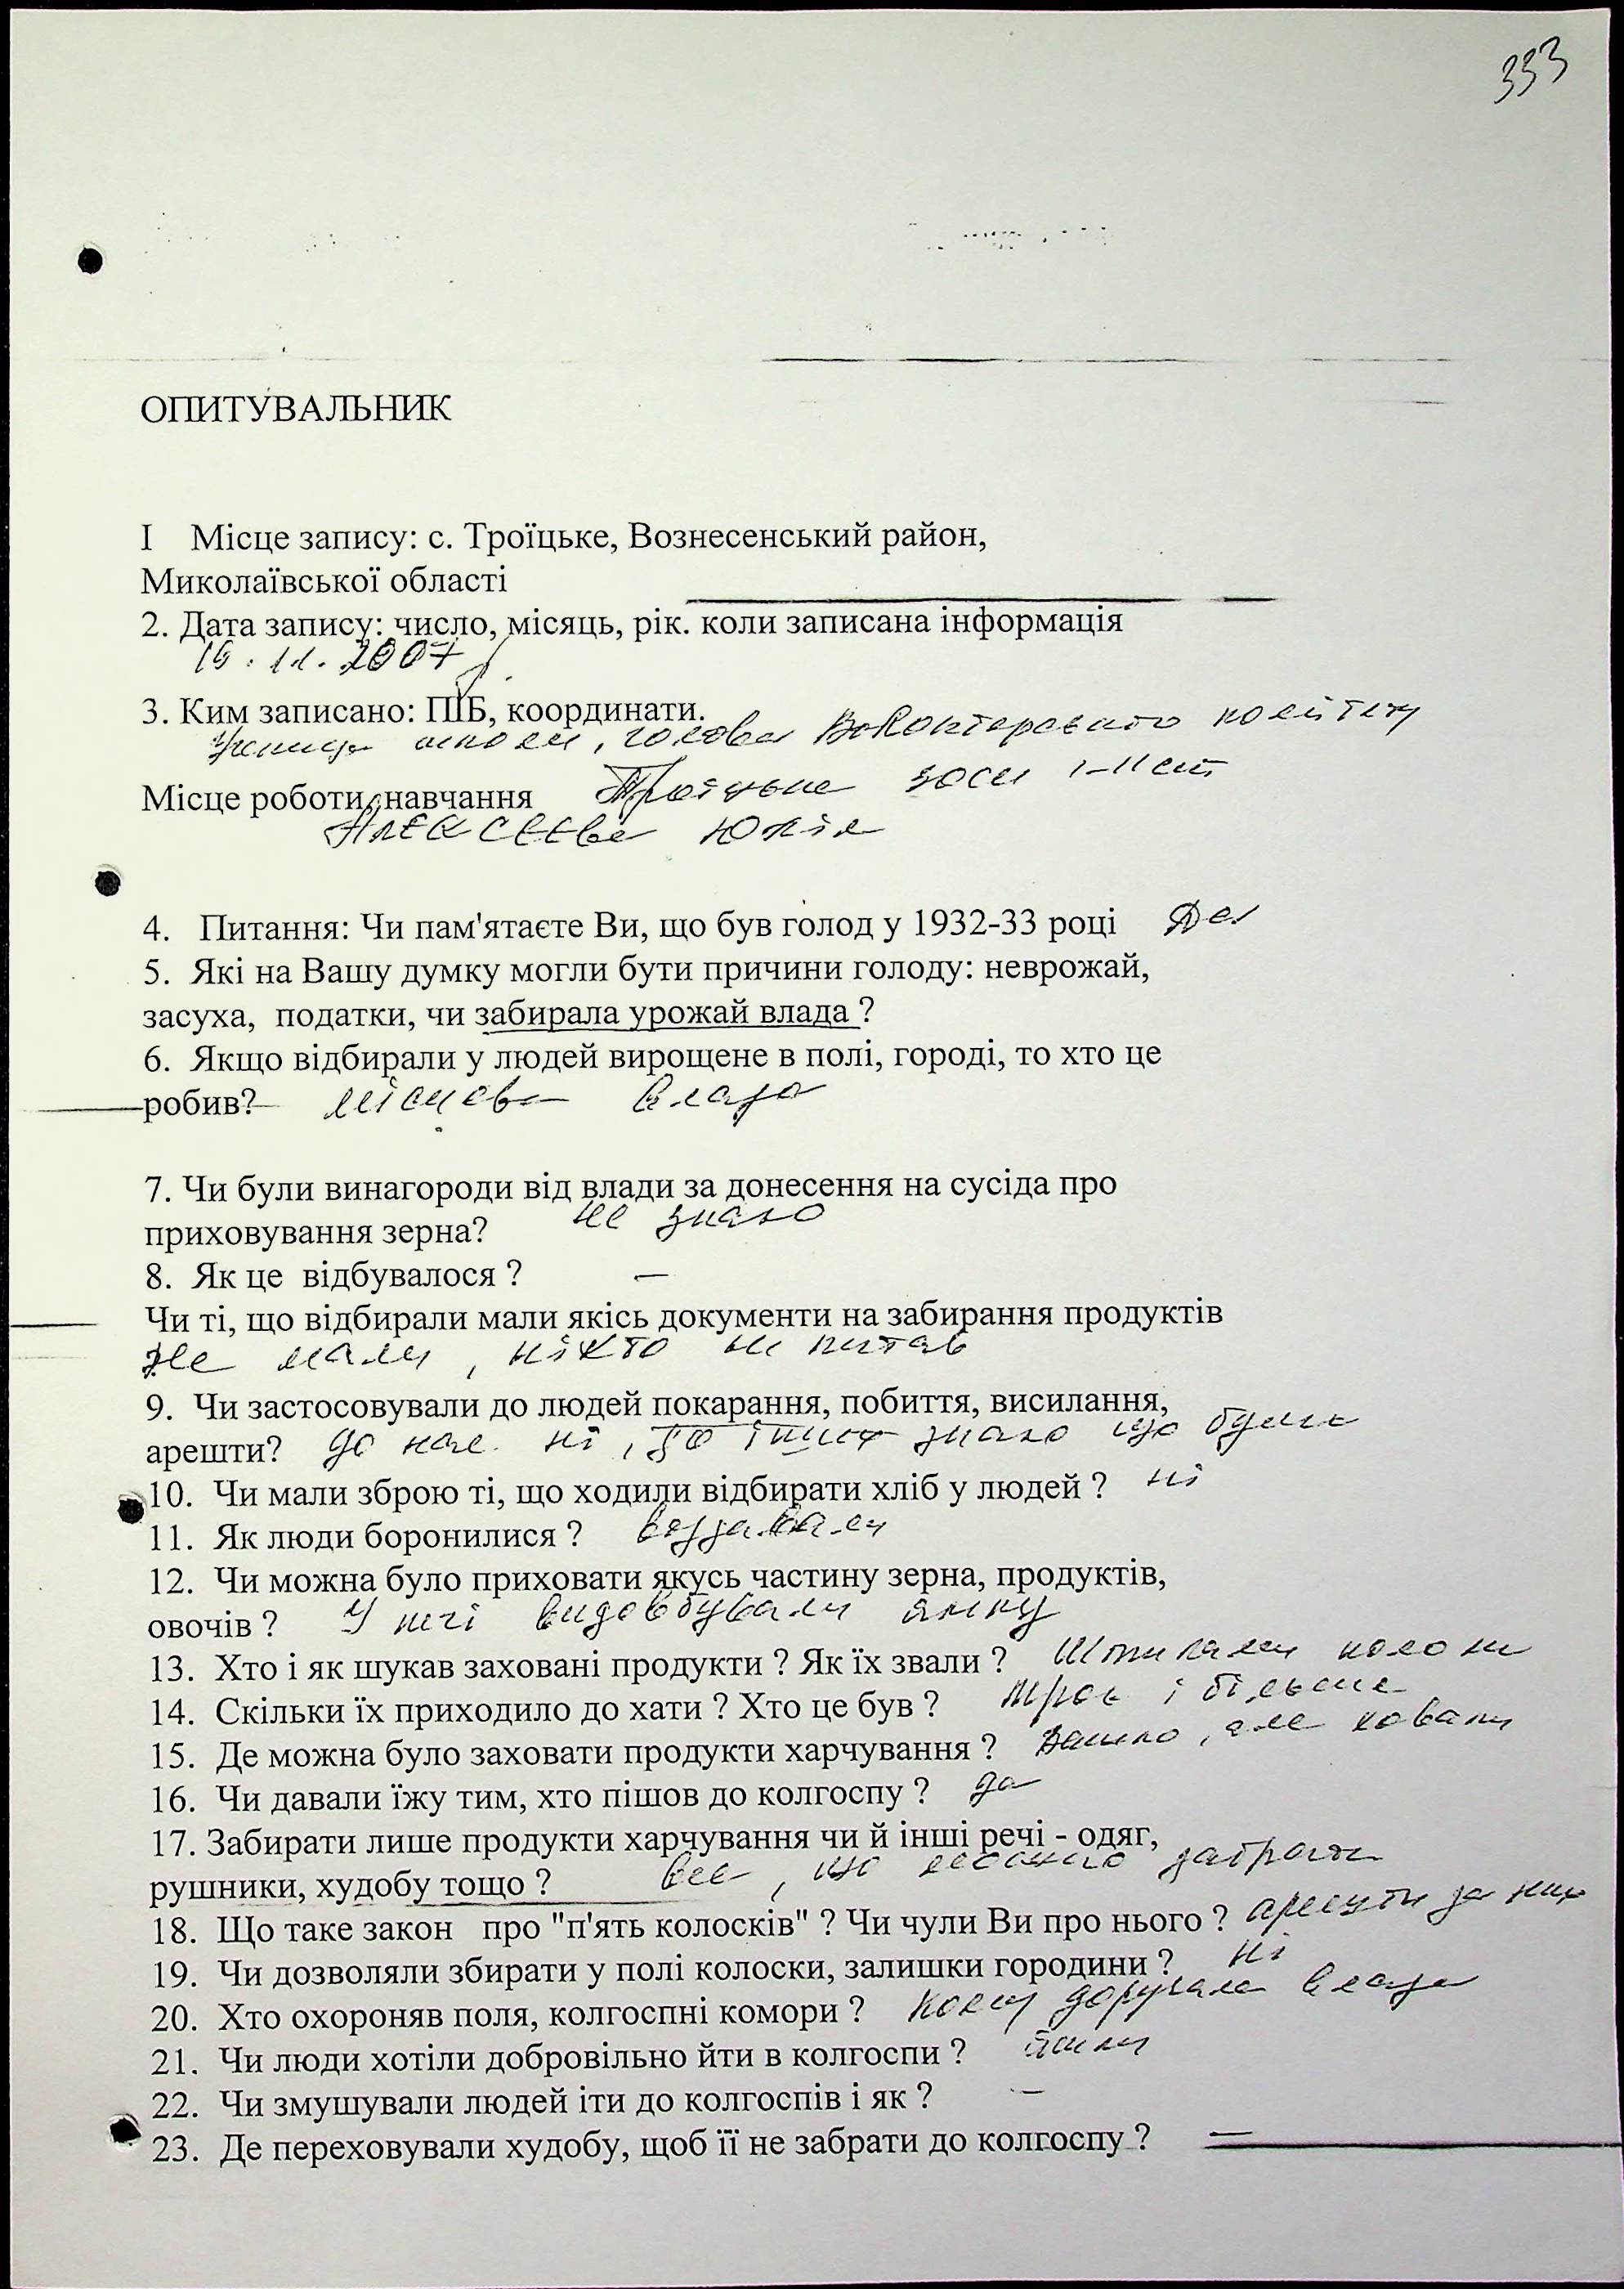 333
ОПИТУВАЛЬНИК
I Місце запису: с. Троїцьке, Вознесенський район,
Миколаївської області
2. Дата запису: число, місяць, рік. коли записана інформація
.11.2007
3. Ким записано: ПІБ, координати.
Учениця школи, голова Волонтерського комітету
Місце роботи, навчання Троїцьке ЗОСШ І-ІІ ст
Алексєєва Юлія
4. Питання: Чи пам'ятаєте Ви, що був голод у 1932-33 році Да
5. Які на Вашу думку могли бути причини голоду: неврожай,
засуха, податки, чи забирала урожай влада ?
6. Якщо відбирали у людей вирощене в полі, городі, то хто це
робив? місцева влада
7. Чи були винагороди від влади за донесення на сусіда про
приховування зерна? не знаю
8. Як це відбувалося ? —
Чи ті, що відбирали мали якісь документи на забирання продуктів
Не мали, ніхто не питав
9. Чи застосовували до людей покарання, побиття, висилання,
арешти? до нас ні, до інших знаю що були
10. Чи мали зброю ті, що ходили відбирати хліб у людей ? ні
11. Як люди боронилися ? віддавали
12. Чи можна було приховати якусь частину зерна, продуктів,
овочів ? У печі видовбували ямку
13. Хто і як шукав заховані продукти ? Як їх звали ? Штирхали
14. Скільки їх приходило до хати ? Хто це був ? троє і більше
15. Де можна було заховати продукти харчування ? Важко, але ховали
16. Чи давали їжу тим, хто пішов до колгоспу ? да
17. Забирати лише продукти харчування чи й інші речі - одяг,
рушники, худобу тощо ? Все, що можно забрати
18. Що таке закон про "п'ять колосків" ? Чи чули Ви про нього ? арешти за них
19. Чи дозволяли збирати у полі колоски, залишки городини ? ні
20. Хто охороняв поля, колгоспні комори ? Кому доручала влада
21. Чи люди хотіли добровільно йти в колгоспи ? йшли
22. Чи змушували людей іти до колгоспів і як ? —
23. Де переховували худобу, щоб її не забрати до колгоспу ? —